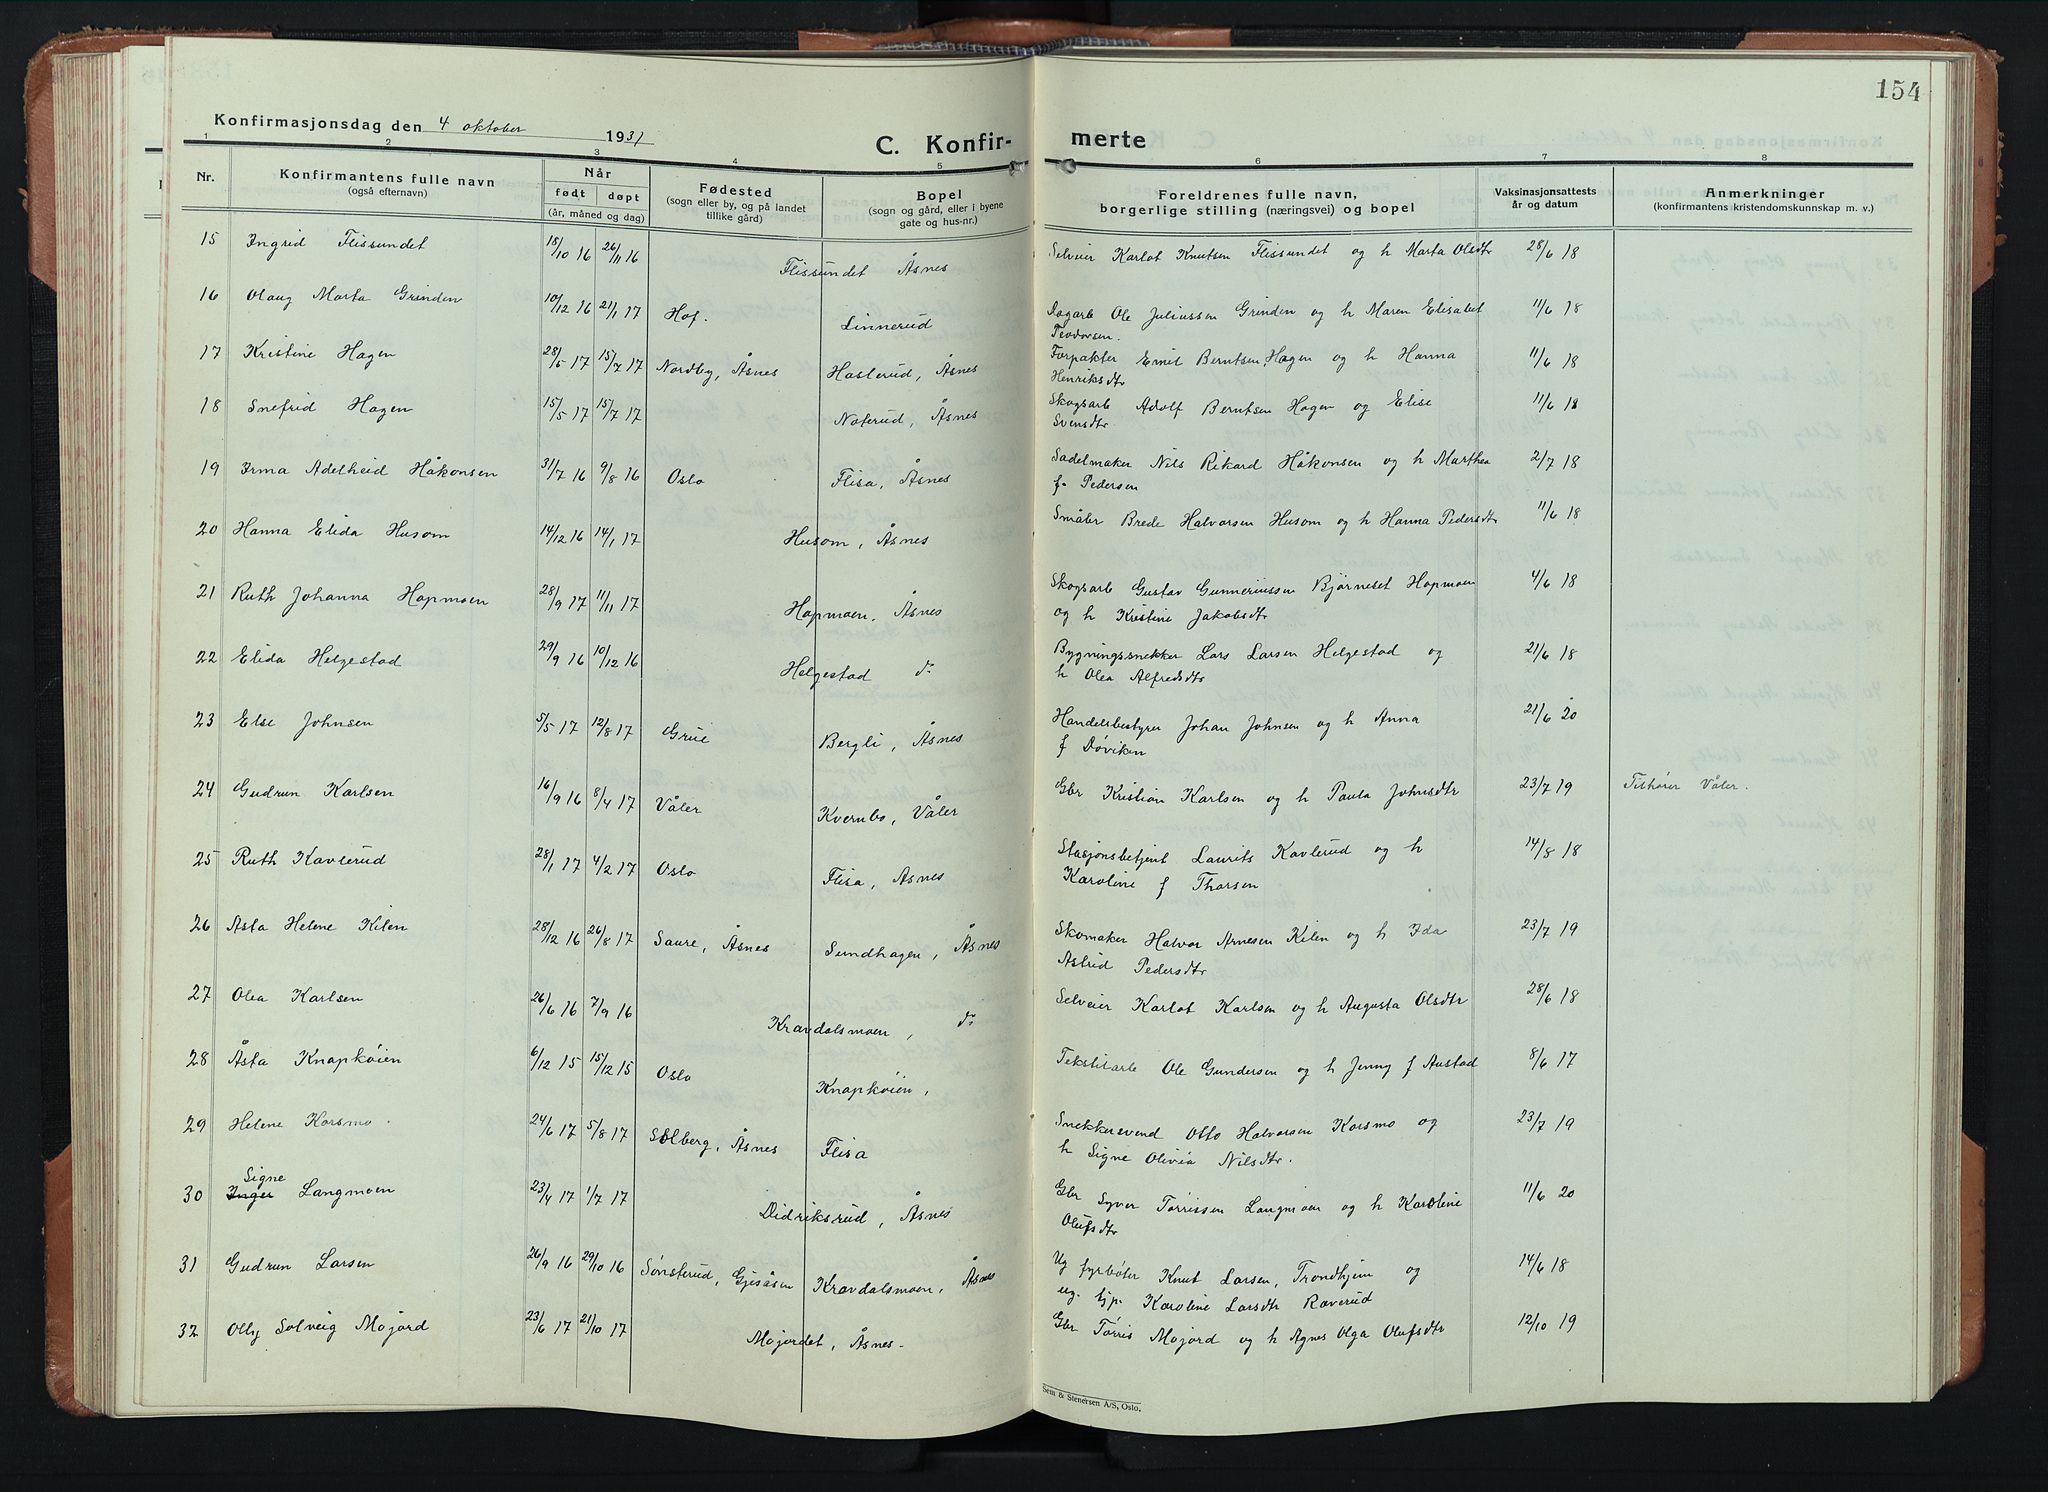 154
Konfirmasjonsdag den 4 oktober 1931
C. Konfir- merte
1 2 3 4 5 6 7 8
Nr. Konfirmantens fulle navn (også efternavn) Når født døpt (år, måned og dag) Fødested (sogn eller by, og på landet tillike gård) Bopel (sogn og gård, eller i byene gate og hus-nr.) Foreldrenes fulle navn, borgerlige stilling (næringsvei) og bopel Vaksinasjonsattests år og datum Anmerkninger (konfirmantens kristendomskunnskap m. v.)
15 Ingrid Flissundet 18/10 16 26/11 16 Flissundet Åsnes Selveier Karlot Knutsen Flissundet og h Marta Olsdtr 28/6 18
16 Olaug Marta Grinden 10/12 16 21/1 17 Hof. Linnerud Dagarb Ole Juliussen Grinden og h Maren Elisabet 11/6 18
Teodorsen.
17 Kristine Hagen 28/5 17 15/7 17 Nordby, Åsnes Hasterud, Åsnes Forpakter Emil Berntsen Hagen og h Hanna 11/6 18
Henriksdtr
18 Snefrid Hagen 15/5 17 15/7 17 Noterud, Åsnes Skogsarb Adolf Berntsen Hagen og Elise 11/6 18
Svensdtr
19 Irma Adelheid Håkonsen 31/7 16 9/8 16 Oslo Flisa, Åsnes Sadelmaker Nils Rikard Håkonsen og h Marthea 2/7 18
f. Pedersen
20 Hanna Elida Husom 14/12 16 14/1 17 Husom, Åsnes Småbr Brede Halvorsen Husom og h Hanna Pedersdtr 11/6 18
21 Ruth Johanna Hapmoen 28/9 17 11/11 17 Hapmoen, Åsnes Skogsarb Gustav Gunneriussen Bjørneset Hapmoen 4/6 18
og h Kristine Jakobsdtr
22 Elida Helgestad 29/9 16 10/12 16 Helgestad do Bygningssnekker Lars Larsen Helgestad og 21/6 18
h Olea Alfredsdtr
23 Else Johnsen 5/5 17 12/8 17 Grue Bergli, Åsnes Handelsbestyrer Johan Johnsen og h Anna 21/6 20
f Døviken
24 Gudrun Karlsen 16/9 16 8/4 17 Våler Kvernbo, Våler Gbr Kristian Karlsen og h Paula Johnsdtr 23/7 19 Tilhører Våler.
25 Ruth Kavlerud 28/1 17 4/2 17 Oslo Flisa, Åsnes Stasjonsbetjent Laurits Kavlerud og h 14/8 18
Karoline f Thorsen
26 Asta Helene Kilen 28/12 16 26/8 17 Saure, Åsnes Sundhagen, Åsnes Skomaker Halvor Arnesen Kilen og h Ida 23/7 19
Astrid Pedersdtr
27 Olea Karlsen 26/6 16 7/9 16 Kravdalsmoen, do Selveier Karlot Karlsen og h Augusta Olsdtr 28/6 18
28 Åsta Knapkøien 6/12 15 15/12 15 Oslo Knapkøien, Tekstilarb Ole Gundersen og h Jenny f Austad 8/6 17
29 Helene Korsmo. 24/6 17 5/8 17 Solberg, Åsnes Flisa Snekkersvend Otto Halvorsen Korsmo og 23/7 19
h Signe Olivia Nilsdtr.
Signe
30 Inger Langmoen 23/4 17 1/7 17 Didriksrud, Åsnes Gbr Syver Tørrissen Langmoen og h Karoline 11/6 20
Olufsdtr
31 Gudrun Larsen 26/9 16 29/10 16 Sønsterud, Gjesåsen Kravdalsmoen, Åsnes Ug fyrbøter Knut Larsen, Trondhjem og 14/6 18
ug. tjp. Karoline Larsdtr Raverud
32 Olly Solveig Mojord 23/6 17 21/10 17 Mojordet, Åsnes. Gbr Tørris Mojord og h Agnes Olga Olufsdtr 12/10 19
Sem & Stenersen A/S, Oslo.